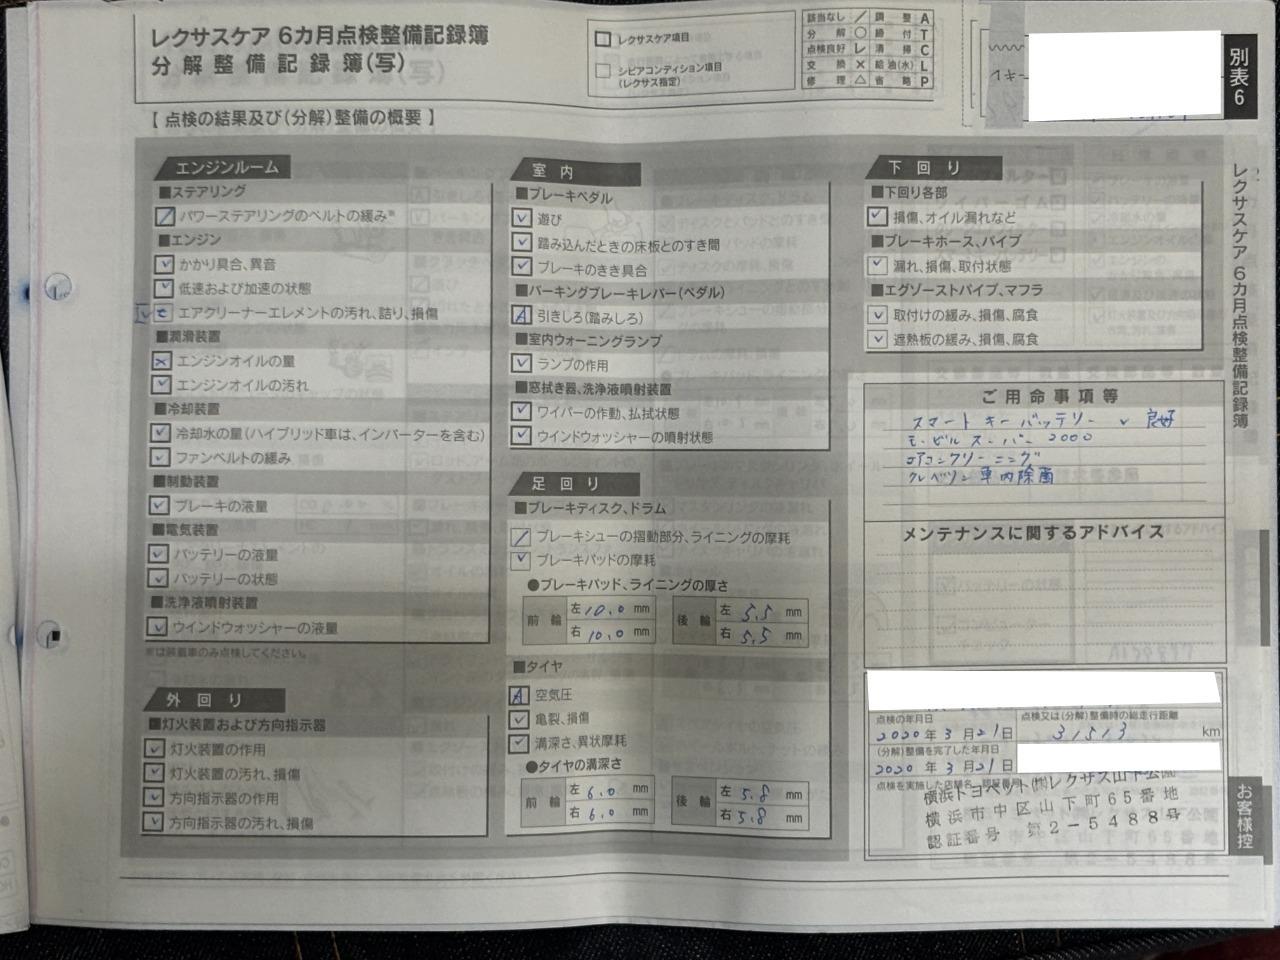 レクサスケア 6カ月点検整備記録簿
分解整備記録簿(写)
レクサスケア項目
シビアコンディション項目
(レクサス指定)
該当なし ／ 調整 A
分解 ○ 締付 T
点検良好 レ 清掃 C
交換 × 給油(水) L
修理 △ 省略 P
別表6
【 点検の結果及び(分解)整備の概要 】
エンジンルーム
■ステアリング
パワーステアリングのベルトの緩み※
■エンジン
かかり具合、異音
低速および加速の状態
エアクリーナーエレメントの汚れ、詰り、損傷
■潤滑装置
エンジンオイルの量
エンジンオイルの汚れ
■冷却装置
冷却水の量(ハイブリッド車は、インバーターを含む)
ファンベルトの緩み
■制動装置
ブレーキの液量
■電気装置
バッテリーの液量
バッテリーの状態
■洗浄液噴射装置
ウインドウォッシャーの液量
※は装着車のみ点検してください。
外回り
■灯火装置および方向指示器
灯火装置の作用
灯火装置の汚れ、損傷
方向指示器の作用
方向指示器の汚れ、損傷
室内
■ブレーキペダル
遊び
踏み込んだときの床板とのすき間
ブレーキのきき具合
■パーキングブレーキレバー(ペダル)
A 引きしろ(踏みしろ)
■室内ウォーニングランプ
ランプの作用
■窓拭き器、洗浄液噴射装置
ワイパーの作動、払拭状態
ウインドウォッシャーの噴射状態
足回り
■ブレーキディスク、ドラム
ブレーキシューの摺動部分、ライニングの摩耗
ブレーキパッドの摩耗
●ブレーキパッド、ライニングの厚さ
前輪 左 10.0 mm 右 10.0 mm
後輪 左 5.5 mm 右 5.5 mm
■タイヤ
A 空気圧
亀裂、損傷
溝深さ、異状摩耗
●タイヤの溝深さ
前輪 左 6.0 mm 右 6.0 mm
後輪 左 5.8 mm 右 5.8 mm
下回り
■下回り各部
損傷、オイル漏れなど
■ブレーキホース、パイプ
漏れ、損傷、取付状態
■エグゾーストパイプ、マフラ
取付けの緩み、損傷、腐食
遮熱板の緩み、損傷、腐食
ご用命事項等
スマートキーバッテリー レ 良好
モービルスーパー2000
エアコンクリーニング
クレベリン車内除菌
メンテナンスに関するアドバイス
点検の年月日
2020年3月21日
点検又は(分解)整備時の総走行距離
31513 km
(分解)整備を完了した年月日
2020年3月21日
点検を実施した店舗名、認証番号
横浜トヨペット㈱レクサス山下公園
横浜市中区山下町65番地
認証番号 第2-5488号
レクサスケア 6カ月点検整備記録簿
お客様控